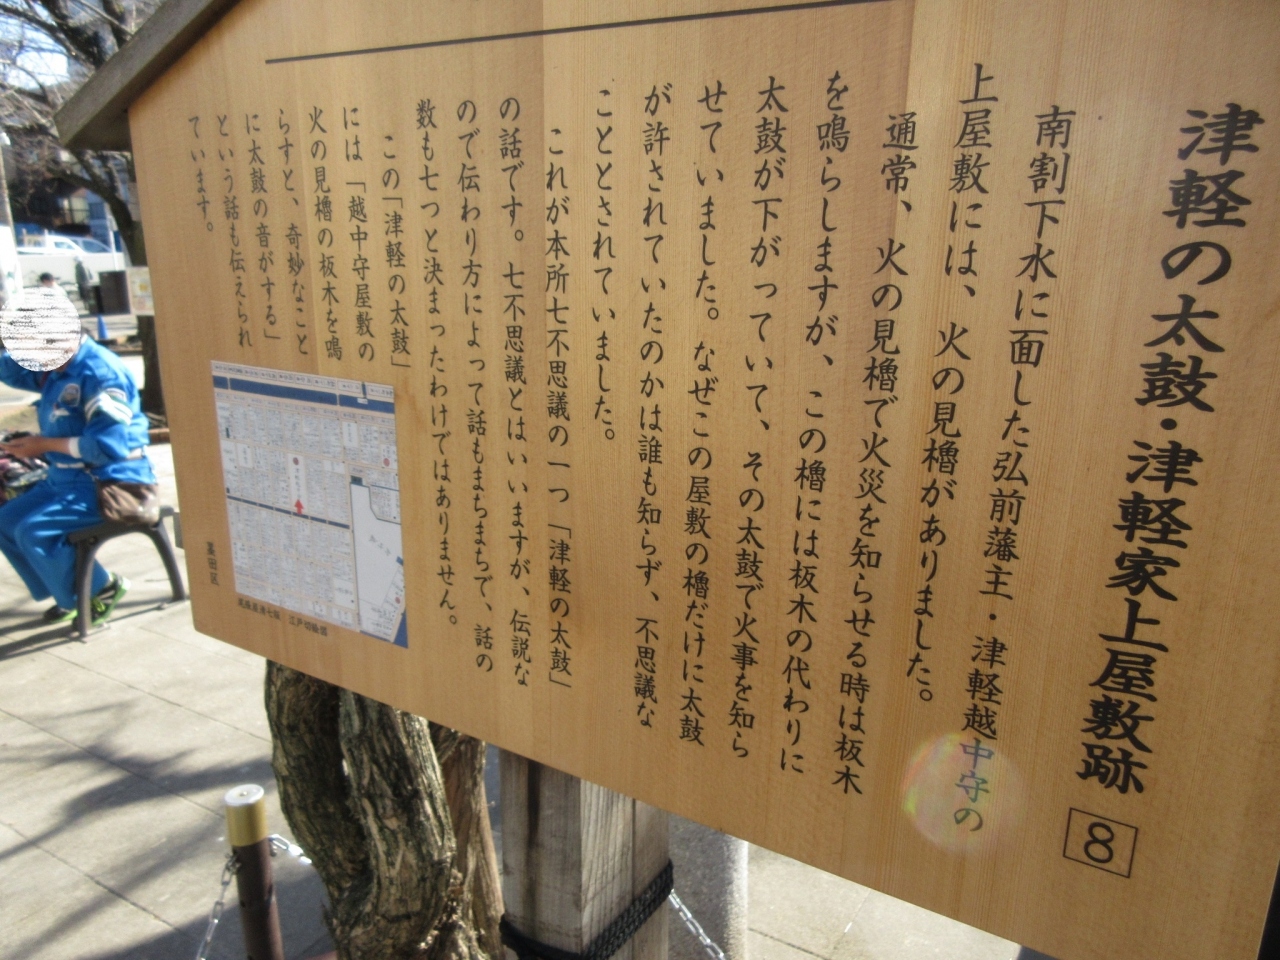 津軽の太鼓・津軽家上屋敷跡 8
南割下水に面した弘前藩主・津軽越中守の
上屋敷には、火の見櫓がありました。
通常、火の見櫓で火災を知らせる時は板木
を鳴らしますが、この櫓には板木の代わりに
太鼓が下がっていて、その太鼓で火事を知ら
せていました。なぜこの屋敷の櫓だけに太鼓
が許されていたのかは誰も知らず、不思議な
こととされていました。
これが本所七不思議の一つ「津軽の太鼓」
の話です。七不思議とはいいますが、伝説な
ので伝わり方によって話もまちまちで、話の
数も七つと決まったわけではありません。
この「津軽の太鼓」
には「越中守屋敷の
火の見櫓の板木を鳴
らすと、奇妙なこと
に太鼓の音がする」
という話も伝えられ
ています。
墨田区
江戸切絵図